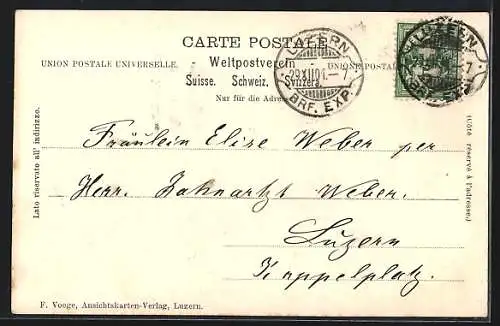 CARTE POSTALE.
Weltpostverein
UNION POSTALE UNIVERSELLE. UNIONE POSTALE
Suisse. Schweiz. Svizzera.
Nur für die Adresse
LUZERN
29.XII.01.-7
BRF. EXP.
LUZERN
29.XII.01.-7
BRF. EXP.
Fräulein Elise Weber per
Herr. Zahnartzt Weber.
Luzern
Kappelplatz.
Lato riservato all' indirizzo.
(Côté réservé à l'adresse.)
F. Vooge, Ansichtskarten-Verlag, Luzern.